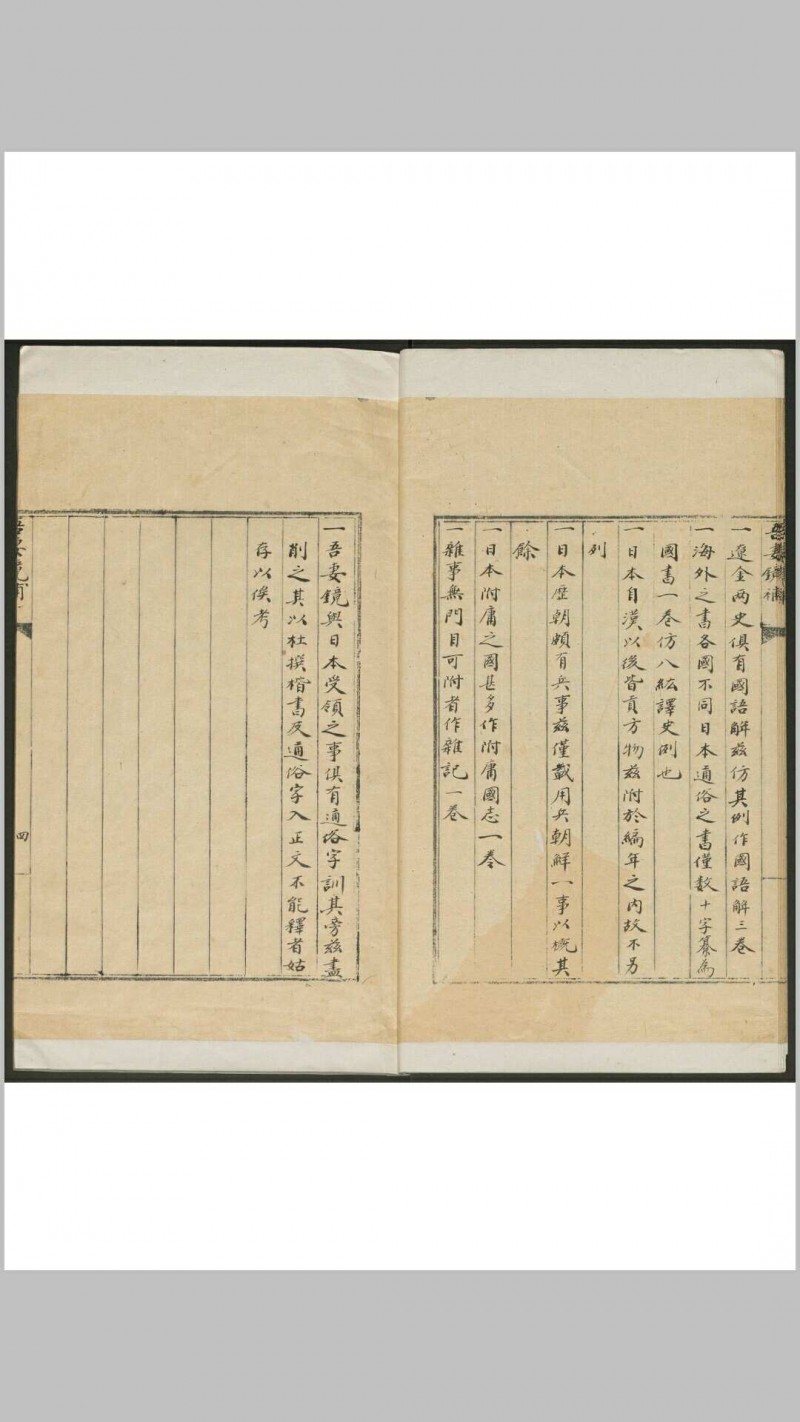 吾妻鏡補
一遼金兩史俱有國語解茲仿其例作國語解三卷
一海外之書各國不同日本通俗之書僅數十字纂為
國書一卷仿八紘譯史例也
一日本自漢以後皆貢方物茲附於編年之內故不另
列
一日本歷朝頗有兵事茲僅載用兵朝鮮一事以概其
餘
一日本附庸之國甚多作附庸國志一卷
一雜事無門目可附者作雜記一卷
一吾妻鏡與日本受領之事俱有通俗字訓其旁茲盡
削之其以杜撰楷書反通俗字入正文不能釋者姑
存以俟考
四